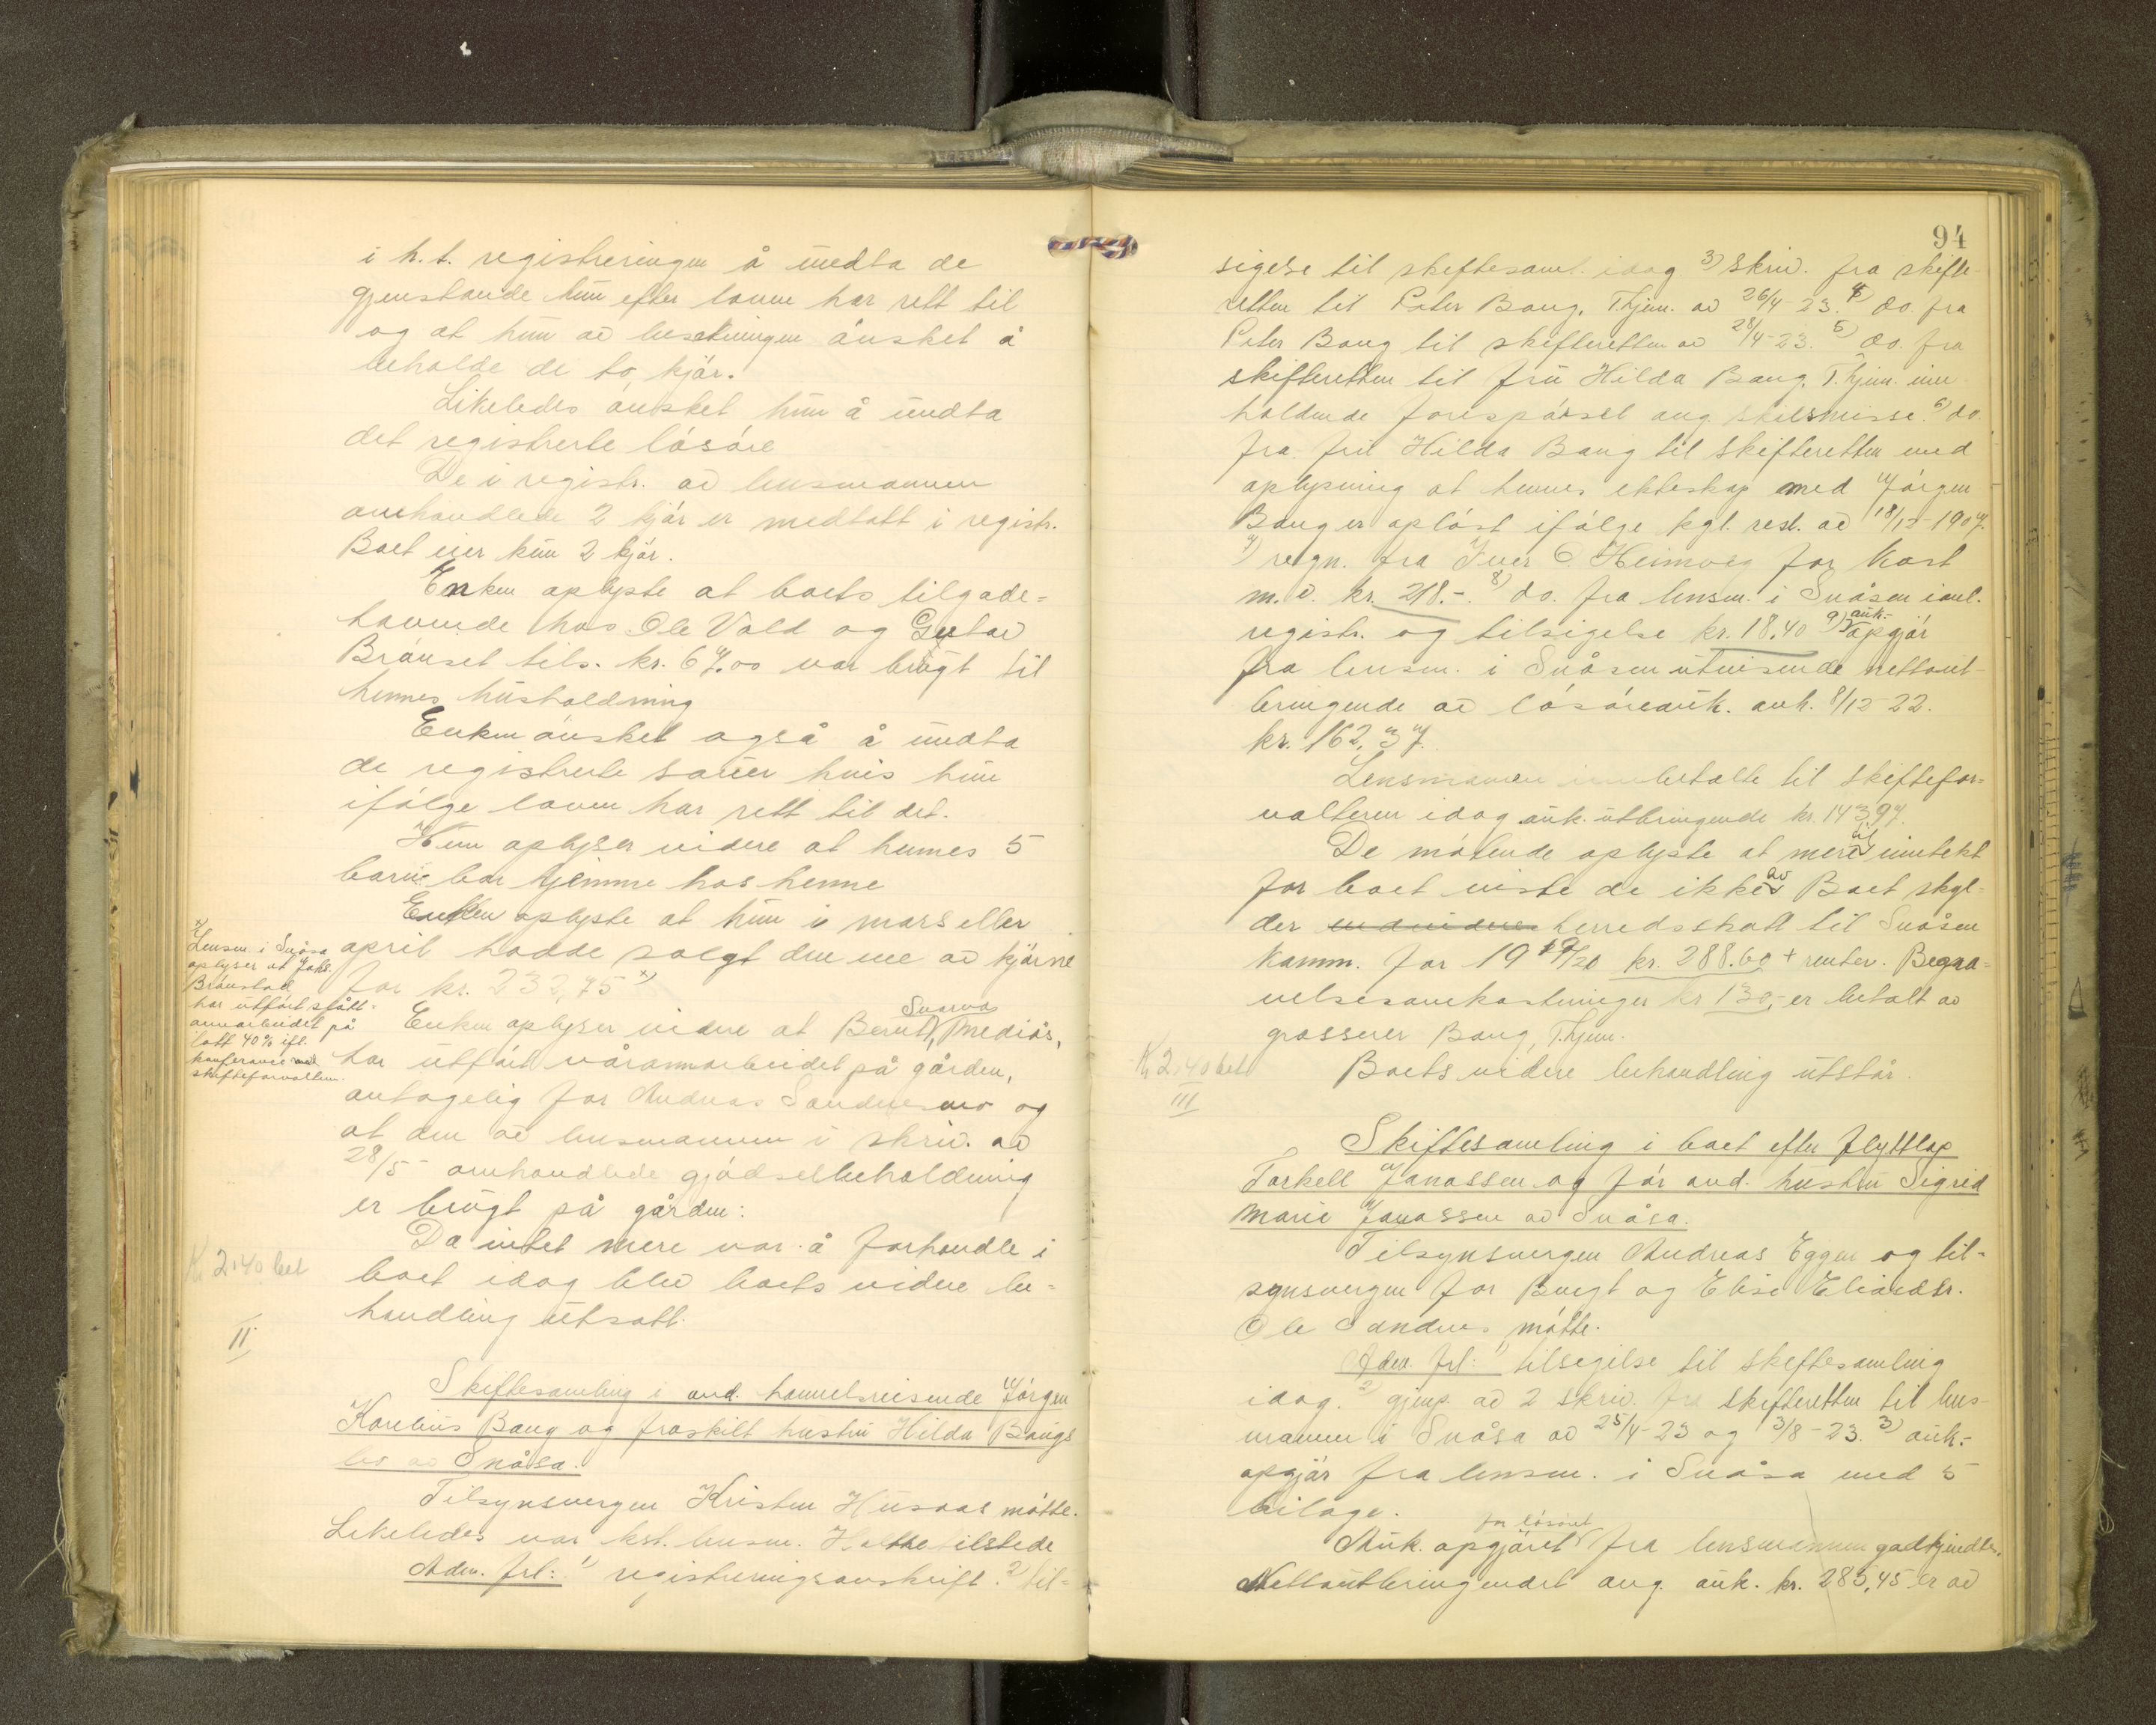 i h.t. registreringen å undta de
gjenstande hun efter loven har rett til
og at hun av besetningen ønsket å
beholde de to kjør.
Likeledes ønsket hun å undta
det registrerte løsøre
De i registr. av lensmannen
omhandlede 2 kjør er medtatt i registr.
Boet eier kun 2 kjør.
Enken oplyste at boets tilgode-
havende hos Ole Vold og Gustav
Brønset tils. kr. 67.00 var brugt til
hennes husholdning
Enken ønsket også å undta
de registrerte sauer hvis hun
ifølge loven har rett til det.
Hun oplyser videre at hennes 5
barn bor hjemme hos henne
Enken oplyste at hun i mars eller
april hadde solgt den ene av kjørne
for kr. 232,75 x)
x)
Lensm. i Snåsa
oplyser at Johs.
Brønstad
har utført slått-
onnarbeidet på
lott 40% ifl.
konferanse med
skifteforvalteren.
Enken oplyser videre at Bernt Snarvos, Mediås,
har utført våronnarbeidet på gården,
antagelig for Andreas Sandnesmo og
at den av lensmannen i skriv. av
28/5 omhandlede gjødselbeholdning
er brugt på gården:
Da intet mere var å forhandle i
boet idag blev boets videre be-
handling utsatt.
K 2.40 bet
II
Skiftesamling i avd. handelsreisende Jørgen
Kornelius Baug og fraskilt hustru Hilda Baugs
bo av Snåsa.
Tilsynsvergen Kristen Husaas møtte.
Likeledes var kst. lensm. Holthe tilstede
Adm. frl: 1) registreringsavskrift. 2) til-
94
sigelse til skiftesaml. idag 3) skriv. fra skifte-
retten til Peter Baug, T.hjem. av 26/4-23. 4) do. fra
Peter Baug til skifteretten av 28/4-23. 5) do. fra
skifteretten til fru Hilda Baug, T.hjem. inne-
holdende forespørsel ang. skilsmisse. 6) do.
fra fru Hilda Baug til skifteretten med
oplysning at hennes ekteskap med Jørgen
Baug er opløst ifølge kgl. resl. av 18/12-1907.
7) regn. fra Iver O. Heimveg for kost
m.v. kr. 218.-. 8) do. fra lensm. i Snåsen i anl.
registr. og tilsigelse kr. 18.40 9) auk.- opgjør
fra lensm. i Snåsen utvisende nettout-
bringende av løsøreauk. avh. 8/12-22.
kr. 162.37.
Lensmannen innbetalte til skiftefor-
valteren idag auk. utbringende kr. 143.97.
De møtende oplyste at mere inntekt
for boet viste de ikke av. Boet skyl-
der herredsskatt til Snåsen
komm. for 1919/20 kr. 288.60 + renter. Begra-
velsesomkostninger kr 130,- er betalt av
grosserer Baug, T.hjem.
Boets videre behandling utstår.
K 2.40 bet
III
Skiftesamling i boet efter flyttlap
Torkell Jonassen og før avd. hustru Sigrid
Marie Jonassen av Snåsa.
Tilsynsvergen Andreas Eggen og til-
synsvergen for Bengt og Elise Eliasdtr.
Ole Sandnes møtte.
Adm. frl: 1) tilsigelse til skiftesamling
idag. 2) gjenp. av 2 skriv. fra skifteretten til lens-
mannen i Snåsa av 25/4-23 og 3/8-23. 3) auk.-
opgjør fra lensm. i Snåsa med 5
bilage.
Auk. opgjøret for løsøret fra lensmannen godkjendtes.
Nettoutbringendet ang. auk. kr. 285,45 er av